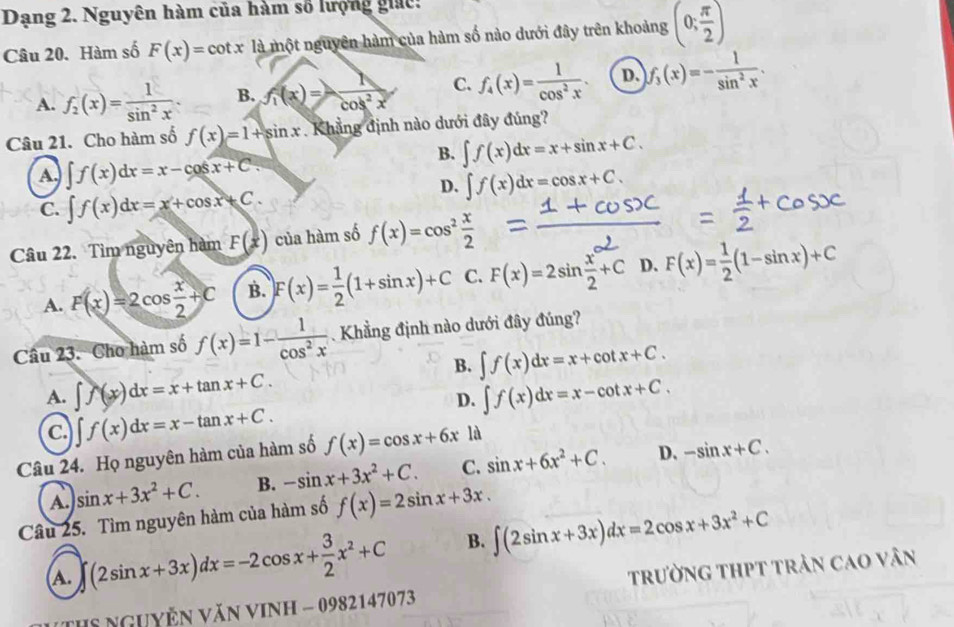 Dạng 2. Nguyên hàm của hàm số lượng giác:
Câu 20. Hàm số F(x) = cot x là một nguyên hàm của hàm số nào dưới đây trên khoảng (0; π/2)
A. f₂(x) = 1/sin² x. B. f₁(x) = -1/cos² x. C. f₄(x) = 1/cos² x. D. f₃(x) = -1/sin² x.
Câu 21. Cho hàm số f(x) = 1 + sin x. Khẳng định nào dưới đây đúng?
A. ∫f(x)dx = x - cos x + C. B. ∫f(x)dx = x + sin x + C.
C. ∫f(x)dx = x + cos x + C. D. ∫f(x)dx = cos x + C.
Câu 22. Tìm nguyên hàm F(x) của hàm số f(x) = cos² x/2 = (1 + cosx)/2 = 1/2 + cosx
A. F(x) = 2cos x/2 + C B. F(x) = 1/2(1 + sin x) + C C. F(x) = 2sin x/2 + C D. F(x) = 1/2(1 - sin x) + C
Câu 23. Cho hàm số f(x) = 1 - 1/cos² x. Khẳng định nào dưới đây đúng?
A. ∫f(x)dx = x + tan x + C. B. ∫f(x)dx = x + cot x + C.
C. ∫f(x)dx = x - tan x + C. D. ∫f(x)dx = x - cot x + C.
Câu 24. Họ nguyên hàm của hàm số f(x) = cos x + 6x là
A. sin x + 3x² + C. B. -sin x + 3x² + C. C. sin x + 6x² + C. D. -sin x + C.
Câu 25. Tìm nguyên hàm của hàm số f(x) = 2sin x + 3x.
A. ∫(2sin x + 3x)dx = -2cos x + 3/2 x² + C B. ∫(2sin x + 3x)dx = 2cos x + 3x² + C
NGUYỄN VĂN VINH – 0982147073 TRƯỜNG THPT TRẦN CAO VÂN